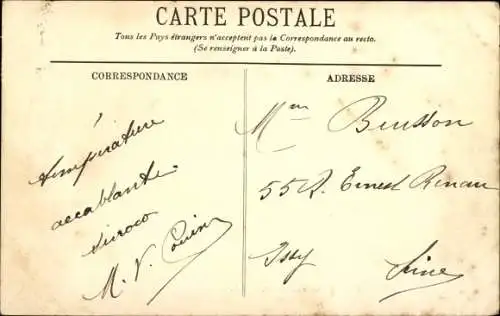 CARTE POSTALE
Tous les Pays étrangers n'acceptent pas la Correspondance au recto.
(Se renseigner à la Poste).
CORRESPONDANCE
température
accablante
siroco
M. V.
ADRESSE
Mme Beusson
55 R. Ernest Renan
Issy Seine